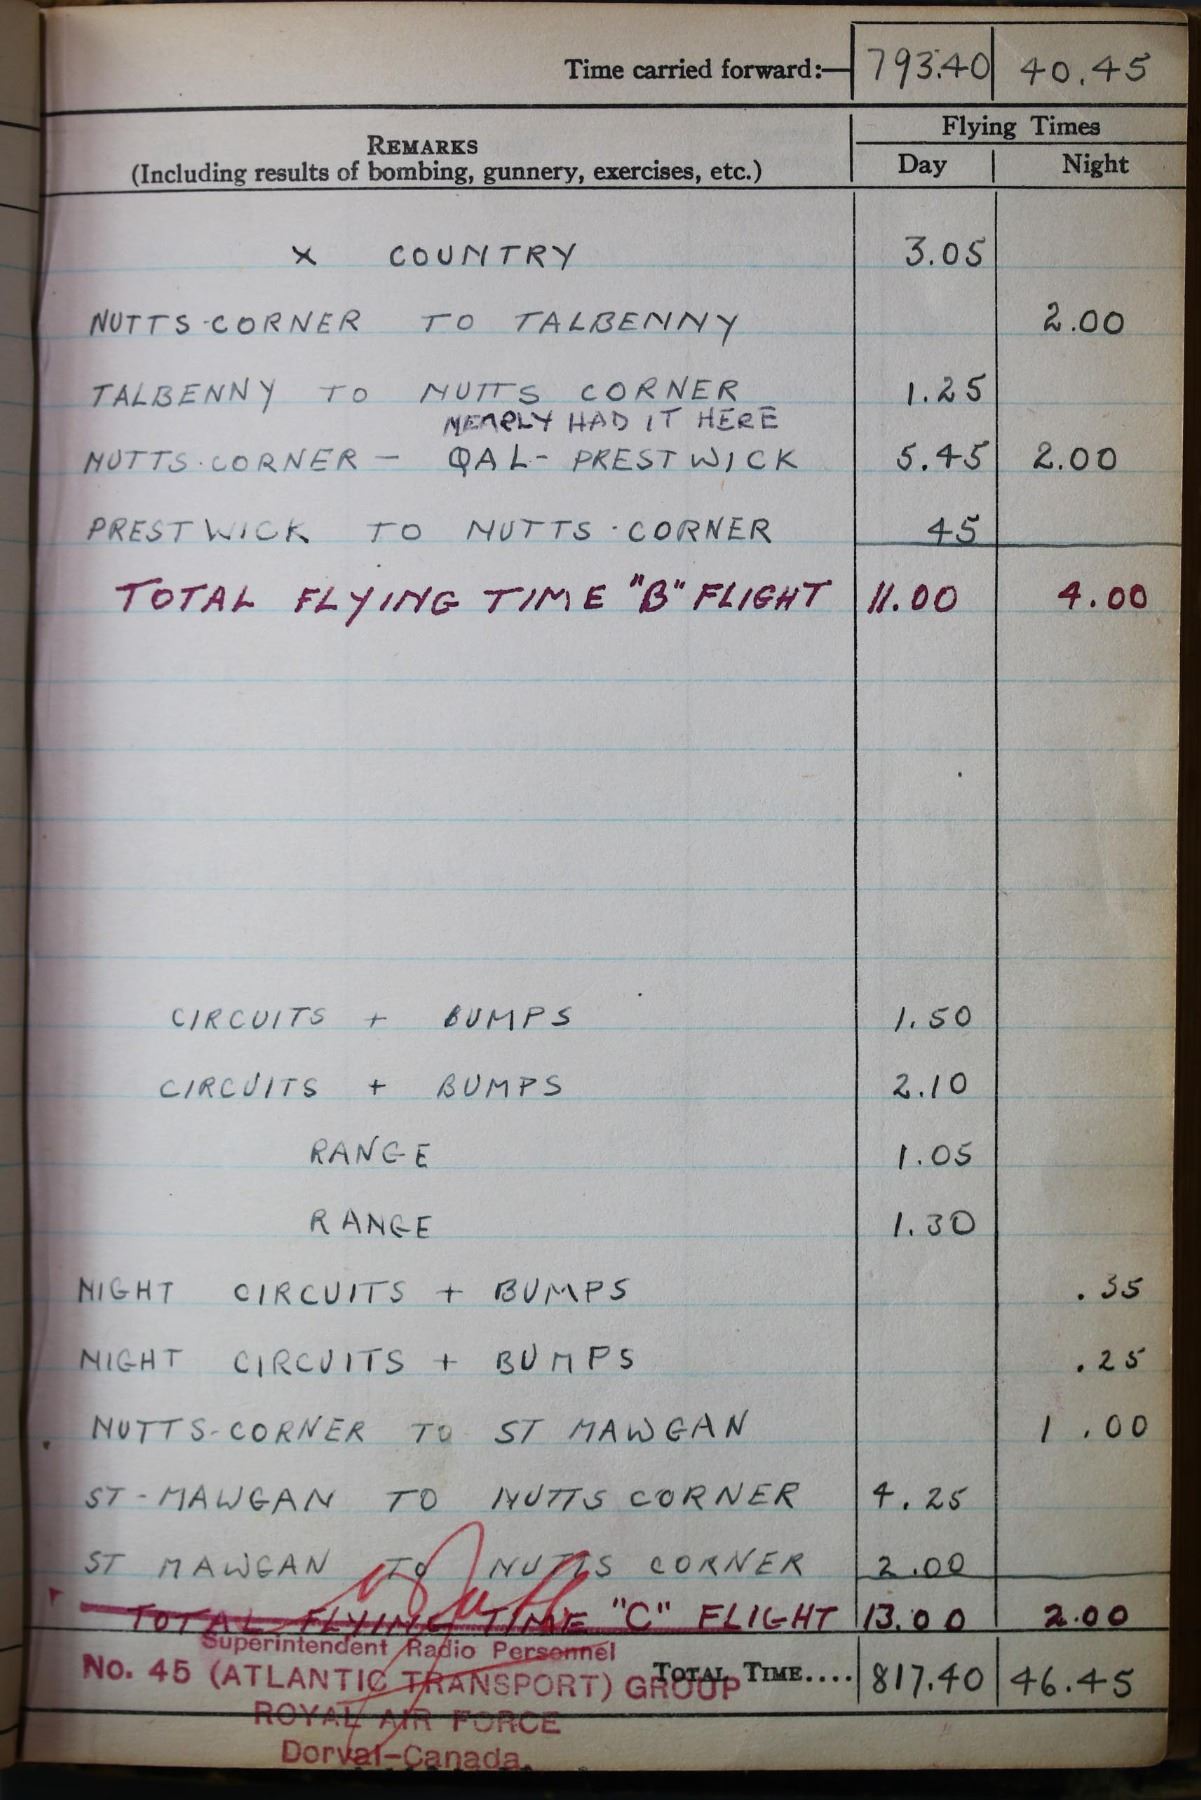 Time carried forward:— 793.40 40.45
REMARKS
(Including results of bombing, gunnery, exercises, etc.)
Flying Times
Day Night
X COUNTRY 3.05
NUTTS-CORNER TO TALBENNY 2.00
TALBENNY TO NUTTS CORNER 1.25
NEARLY HAD IT HERE
NUTTS.CORNER - QAL- PRESTWICK 5.45 2.00
PRESTWICK TO NUTTS.CORNER 45
TOTAL FLYING TIME "B" FLIGHT 11.00 4.00
CIRCUITS + BUMPS 1.50
CIRCUITS + BUMPS 2.10
RANGE 1.05
RANGE 1.30
NIGHT CIRCUITS + BUMPS .35
NIGHT CIRCUITS + BUMPS .25
NUTTS-CORNER TO ST MAWGAN 1.00
ST-MAWGAN TO NUTTS CORNER 4.25
ST MAWGAN TO NUTTS CORNER 2.00
TOTAL FLYING TIME "C" FLIGHT 13.00 2.00
Superintendent Radio Personnel
TOTAL TIME.... 817.40 46.45
No. 45 (ATLANTIC TRANSPORT) GROUP
ROYAL AIR FORCE
Dorval-Canada.